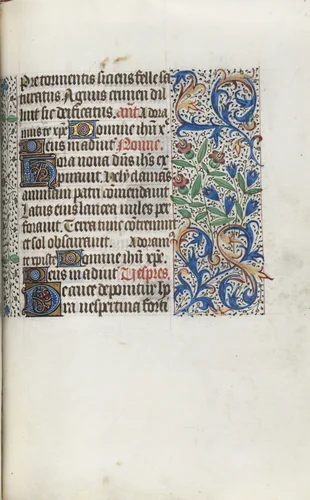 Pre tormentis siciens felle sa
turatus Agnus crimen dil
uit sic deificatus. ant. Adora
mus te xpe Domine ihu x.
Deus in adiut Nonne.
Hora nona dns ihs ex
piravit. Hely clamans
animam patri comendauit.
Latus eius lancea miles per
forauit. Terra tunc contremuit
et sol obscurauit. Adoram
te xpiste. Domine ihu xpe.
Deus in adiut Vespres
De cruce deponitur hy
ora vespertina forti